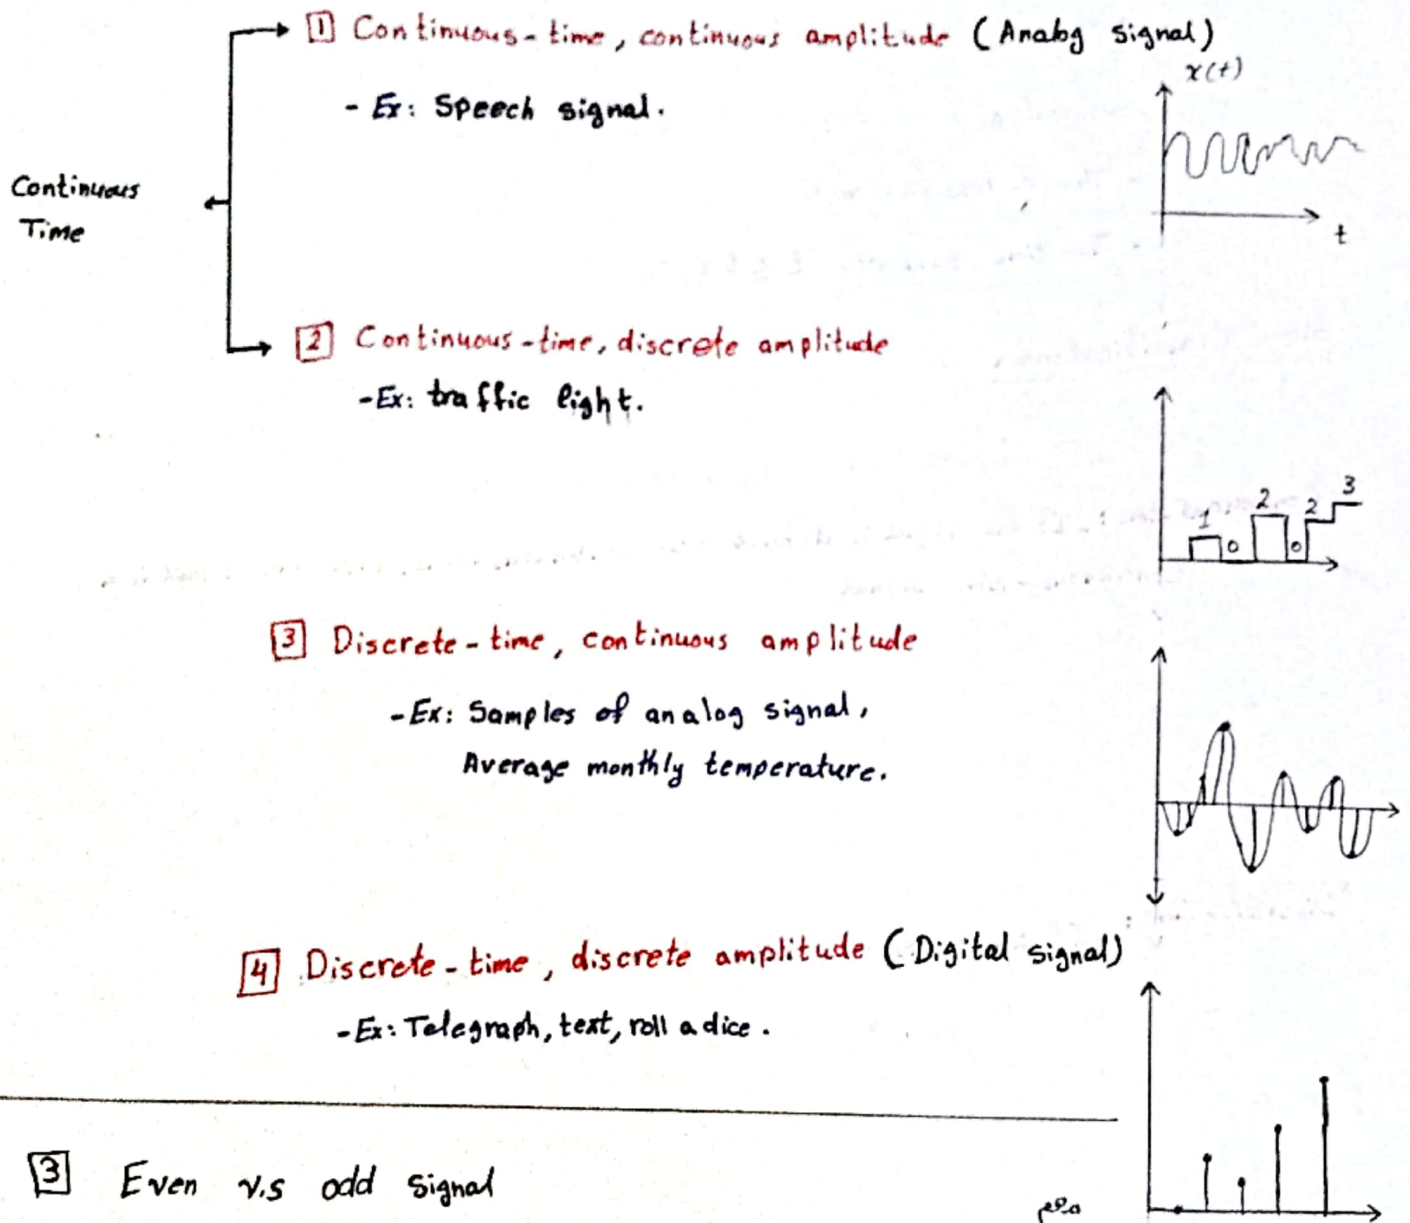 1 Continuous-time, continuous amplitude (Analog signal)
x(t)
- Ex: Speech signal.
Continuous
Time
t
2 Continuous-time, discrete amplitude
-Ex: traffic light.
1 0 2 0 2 3
3 Discrete-time, continuous amplitude
-Ex: Samples of analog signal,
Average monthly temperature.
4 Discrete-time, discrete amplitude (Digital signal)
-Ex: Telegraph, text, roll a dice.
3 Even v.s odd signal